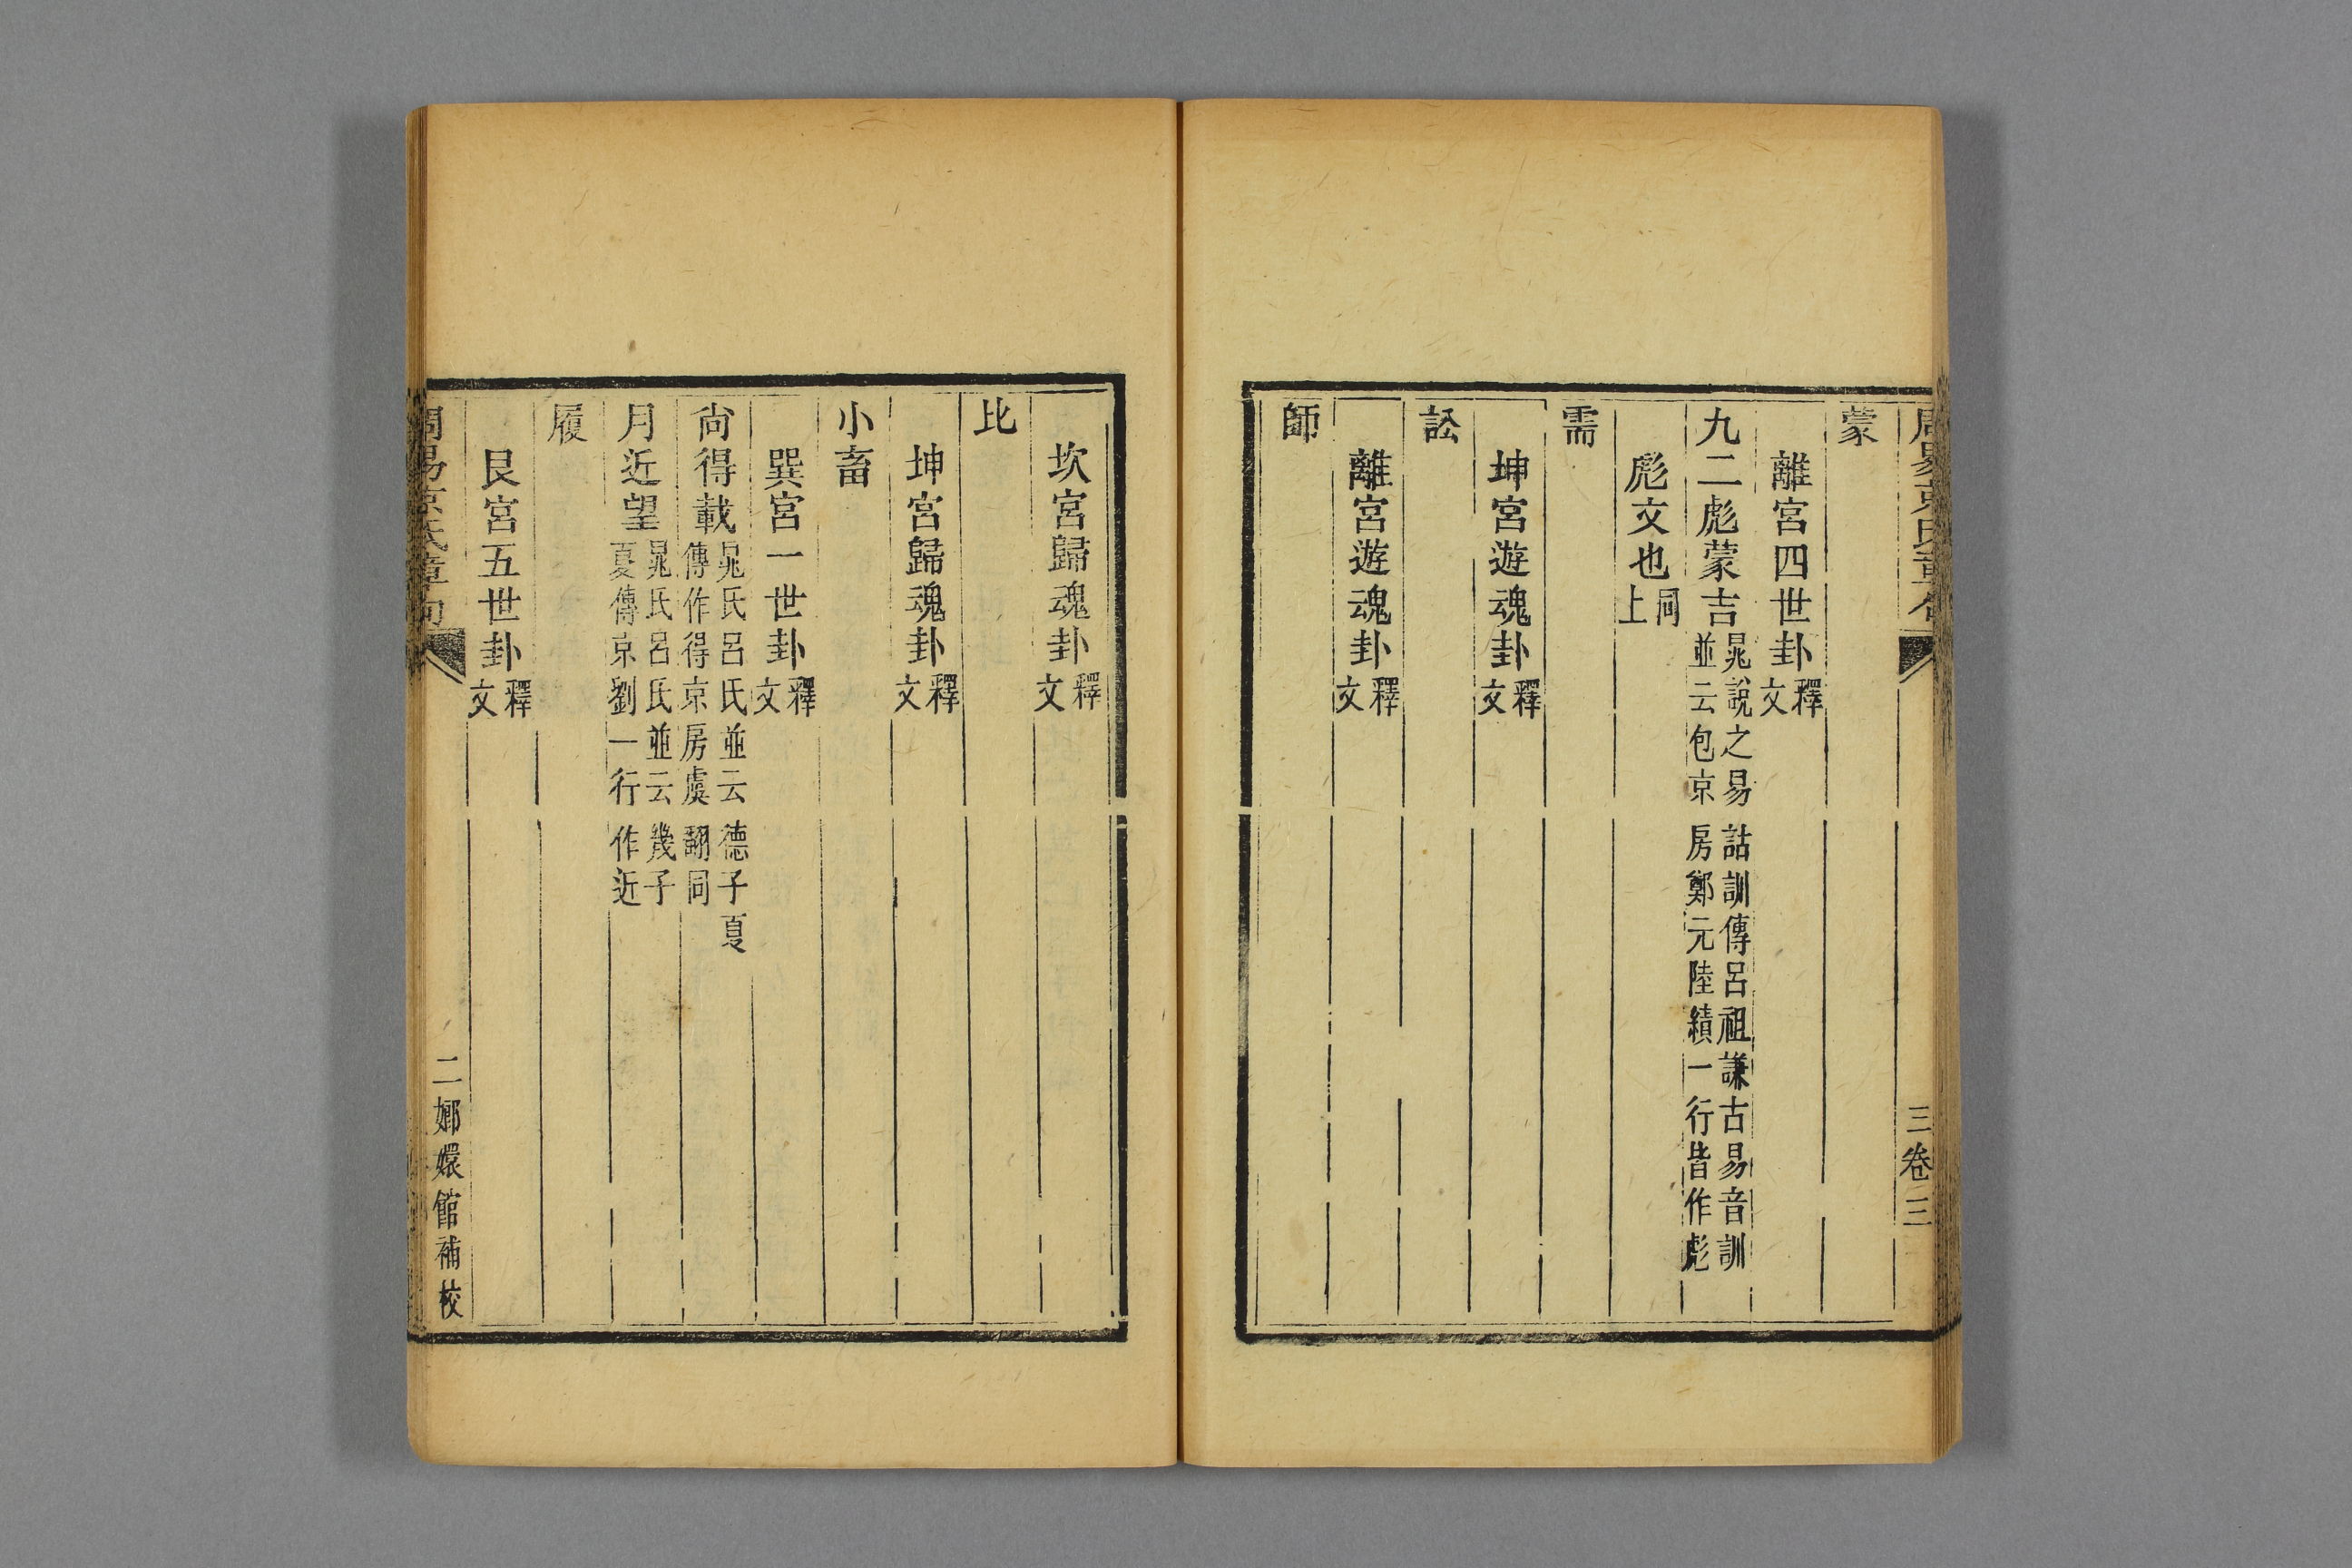 周易京氏章句
三 卷三
蒙
離宮四世卦釋文
九二彪蒙吉晁說之易詁訓傳呂祖謙古易音訓並云包京房鄭元陸績一行皆作彪
彪文也同上
需
坤宮遊魂卦釋文
訟
離宮遊魂卦釋文
師
坎宮歸魂卦釋文
比
坤宮歸魂卦釋文
小畜
巽宮一世卦釋文
尙得載晁氏呂氏並云德子夏傳作得京房虞翻同
月近望晁氏呂氏並云幾子夏傳京劉一行作近
履
艮宮五世卦釋文
周易京氏章句
二 嫏嬛館補校